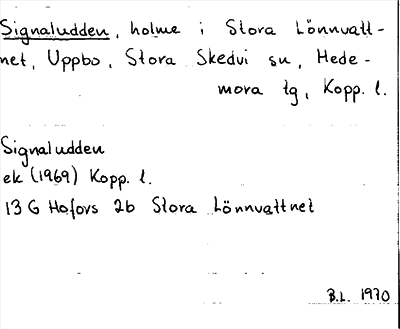 Signaludden, holme i Stora Lönnvatt-
net, Uppbo, Stora Skedvi sn, Hede-
mora tg, Kopp. l.
Signaludden
ek (1969) Kopp. l.
13 G Hofors 2b Stora Lönnvattnet
B.L. 1970